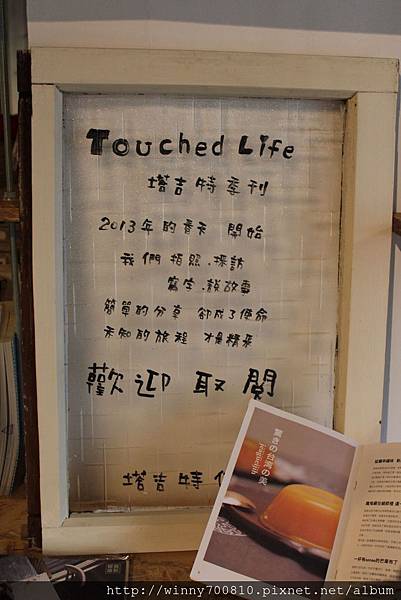 Touched Life
塔吉特季刊
2013年的春天 開始
我們 拍照．採訪
寫字．說故事
簡單的分享 卻成了使命
未知的旅程 才是精采
歡迎取閱
塔吉特
驚きの台湾の美
http://winny700810.pixnet.net/album